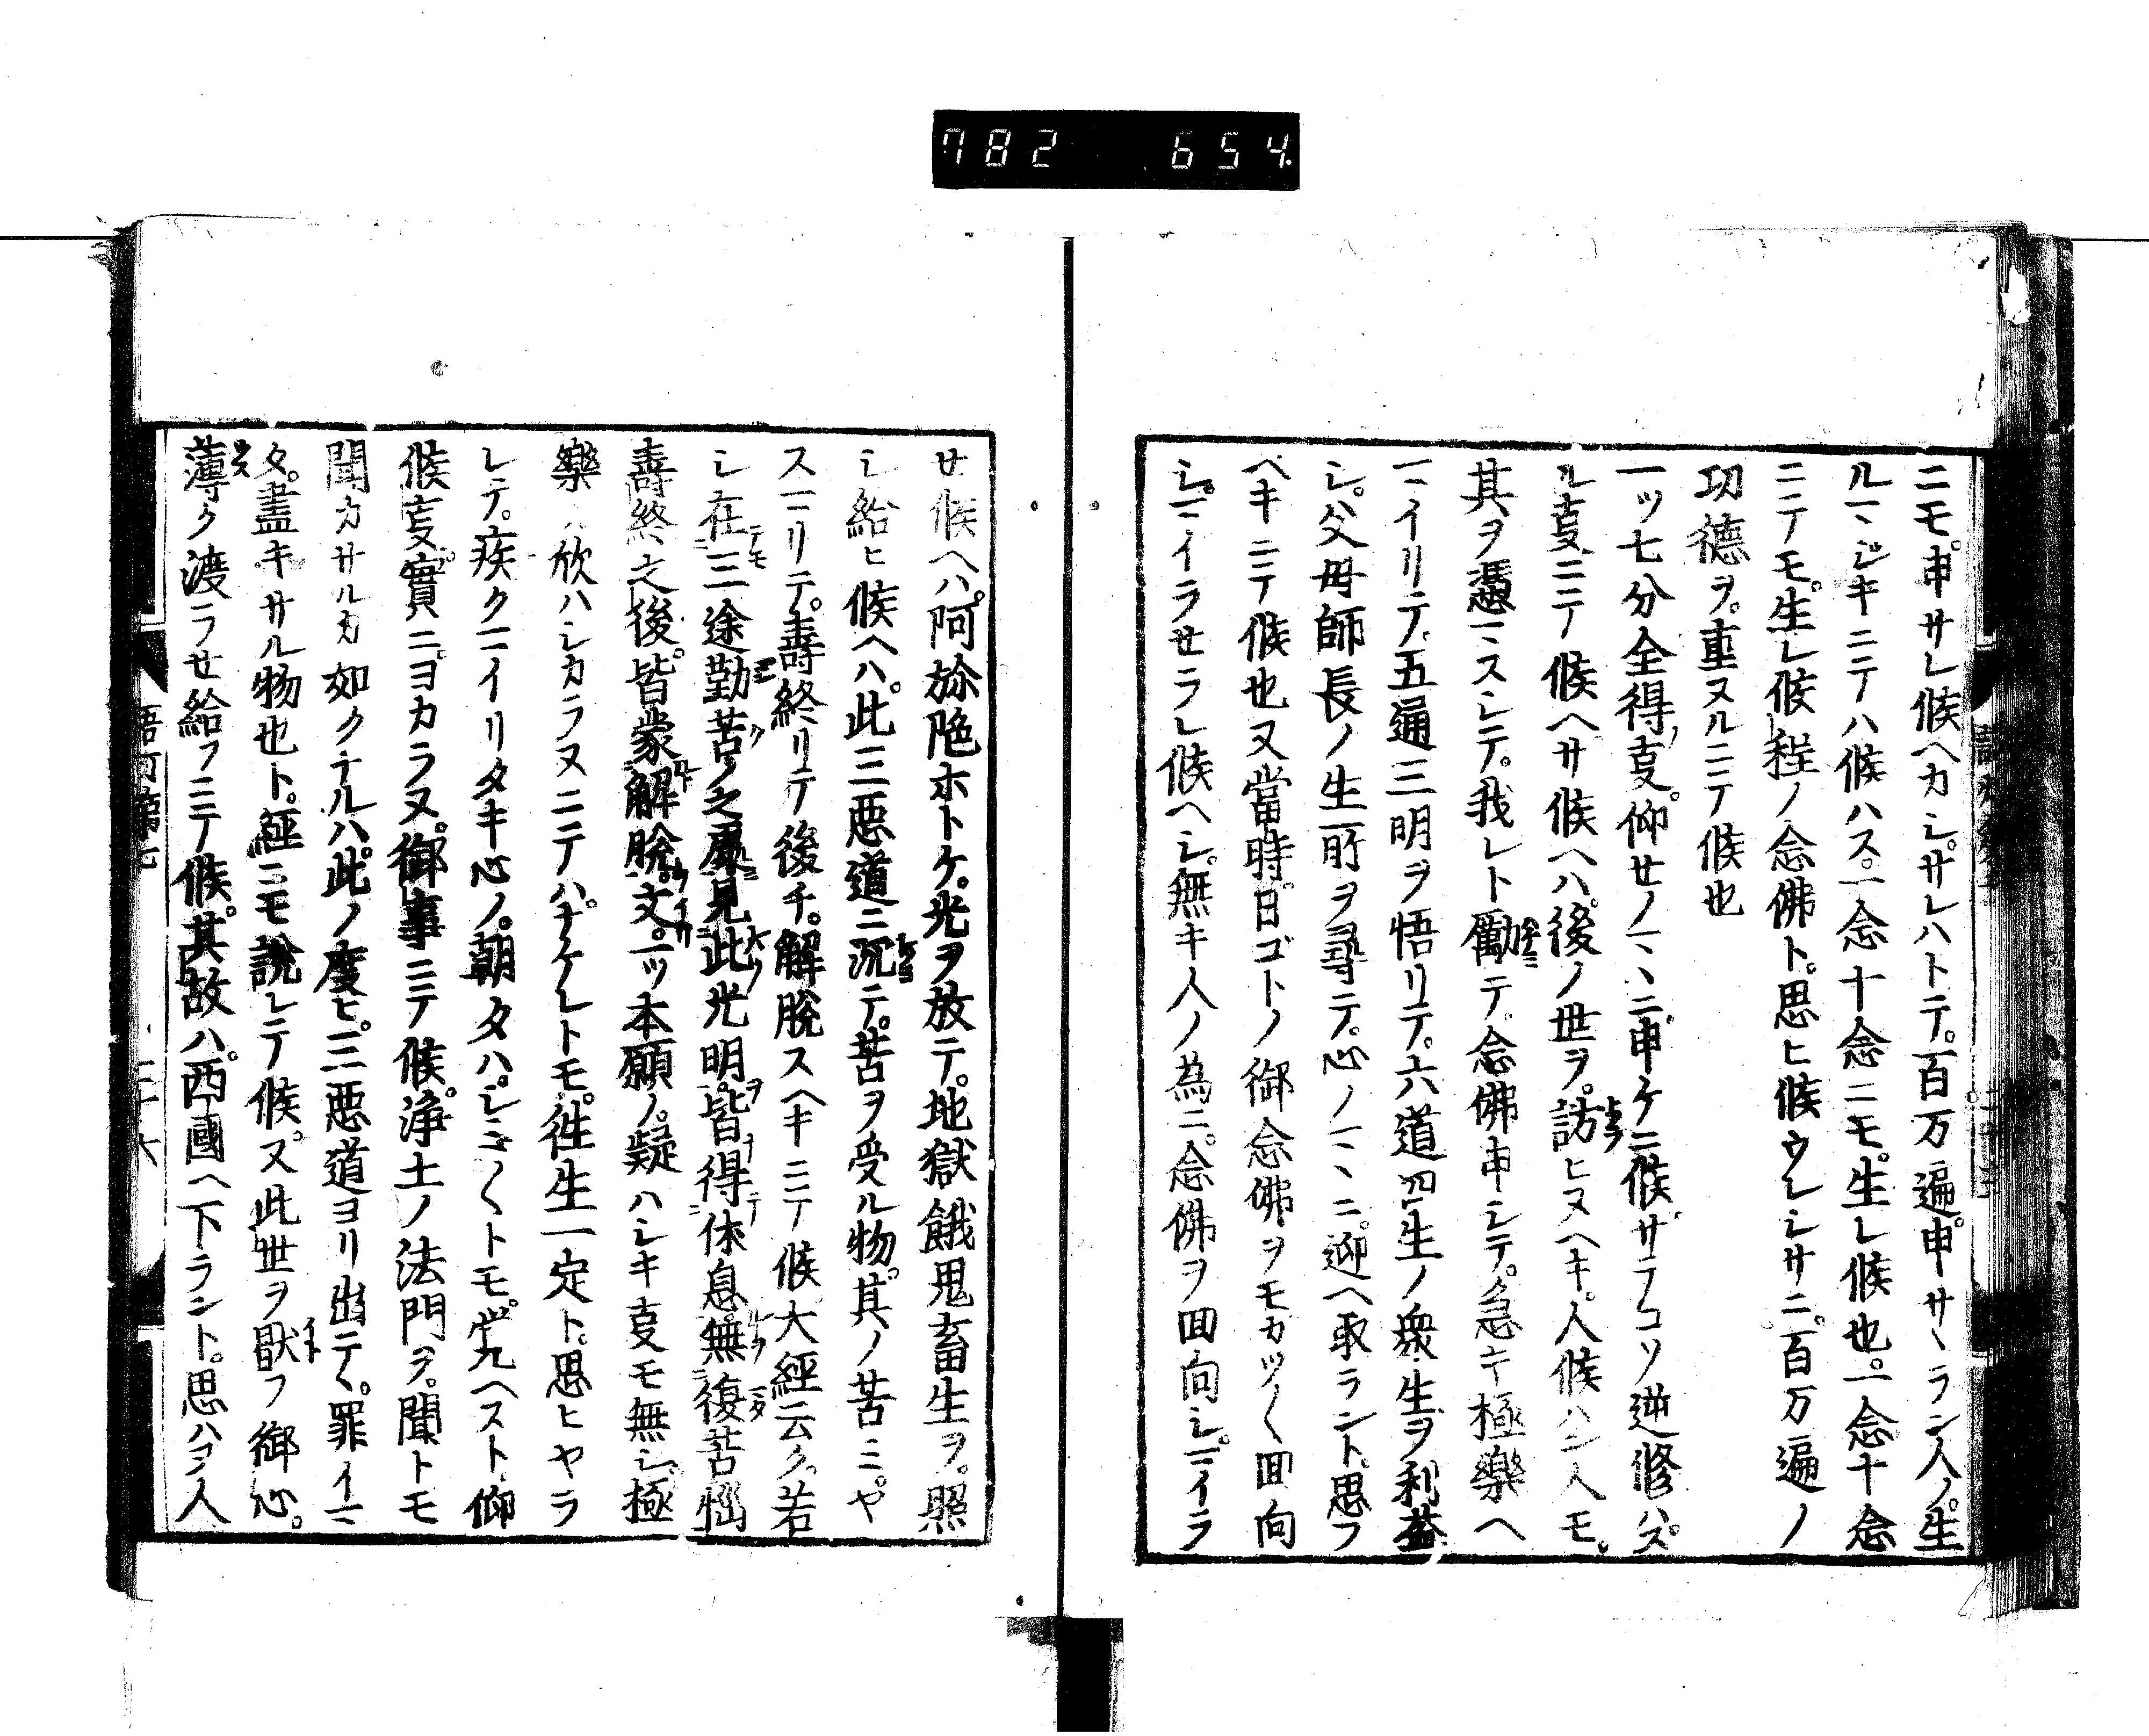 782 654
ニモ申サレ候ヘカシ。サレハトテ。百万遍。申サヽラン人ノ。生
ルマジキニテハ候ハス。一念十念ニモ。生レ候也。一念十念
ニテモ。生レ候程ノ念佛ト。思ヒ候ウレシサニ。百万遍ノ
功德ヲ。重ヌルニテ候也
一ツ七分全得ノ事。仰セノマヽニ申ケニ候。サテコソ逆修ハ。ス
ル事ニテ候ヘサ候ヘハ。後ノ世ヲ。訪ヒヌヘキ。人候ハン人モ。
其ヲ憑マスシテ。我レト勵テ念佛申シテ。急キ極樂ヘ
マイリテ。五通三明ヲ悟リテ。六道四生ノ衆生ヲ利益
シ。父母師長ノ生所ヲ尋テ。心ノマヽニ。迎ヘ取ラント思フ
ヘキニテ候也又當時日ゴトノ御念佛ヲモカツ〱囬向
シマイラセラレ候ヘシ。無キ人ノ為ニ。念佛ヲ囬向シマイラ
サ候ヘハ。阿弥陀ホトケ。光ヲ放テ。地獄餓鬼畜生ヲ。照
シ給ヒ候ヘハ。此三悪道ニ沉テ。苦ヲ受ル物。其ノ苦ミ。ヤ
スマリテ。壽終リテ後チ。解脱スヘキニテ候大經云ク。若
シ在三途勤苦之處見此光明。皆得休息。無復苦惱
壽終之後。皆蒙解脱。文。一ツ本願ノ。疑ハシキ事モ無シ。極
樂ノ欣ハシカラヌニテハ。ナケレトモ。徃生一定ト。思ヒヤラ
レテ。疾クマイリタキ心ノ。朝タハ。シミ〱トモ。覚ヘスト仰
候事。實ニヨカラヌ。御事ニテ候。浄土ノ法門ヲ。聞トモ
聞カサルカ如クナルハ。此ノ度ヒ。三悪道ヨリ出テヽ。罪イマ
タ。盡キサル物也ト。經ニモ說レテ候。又此世ヲ猒フ御心。
薄ク渡ラセ給フニテ候。其故ハ。西國ヘ下ラント。思ハヌ人